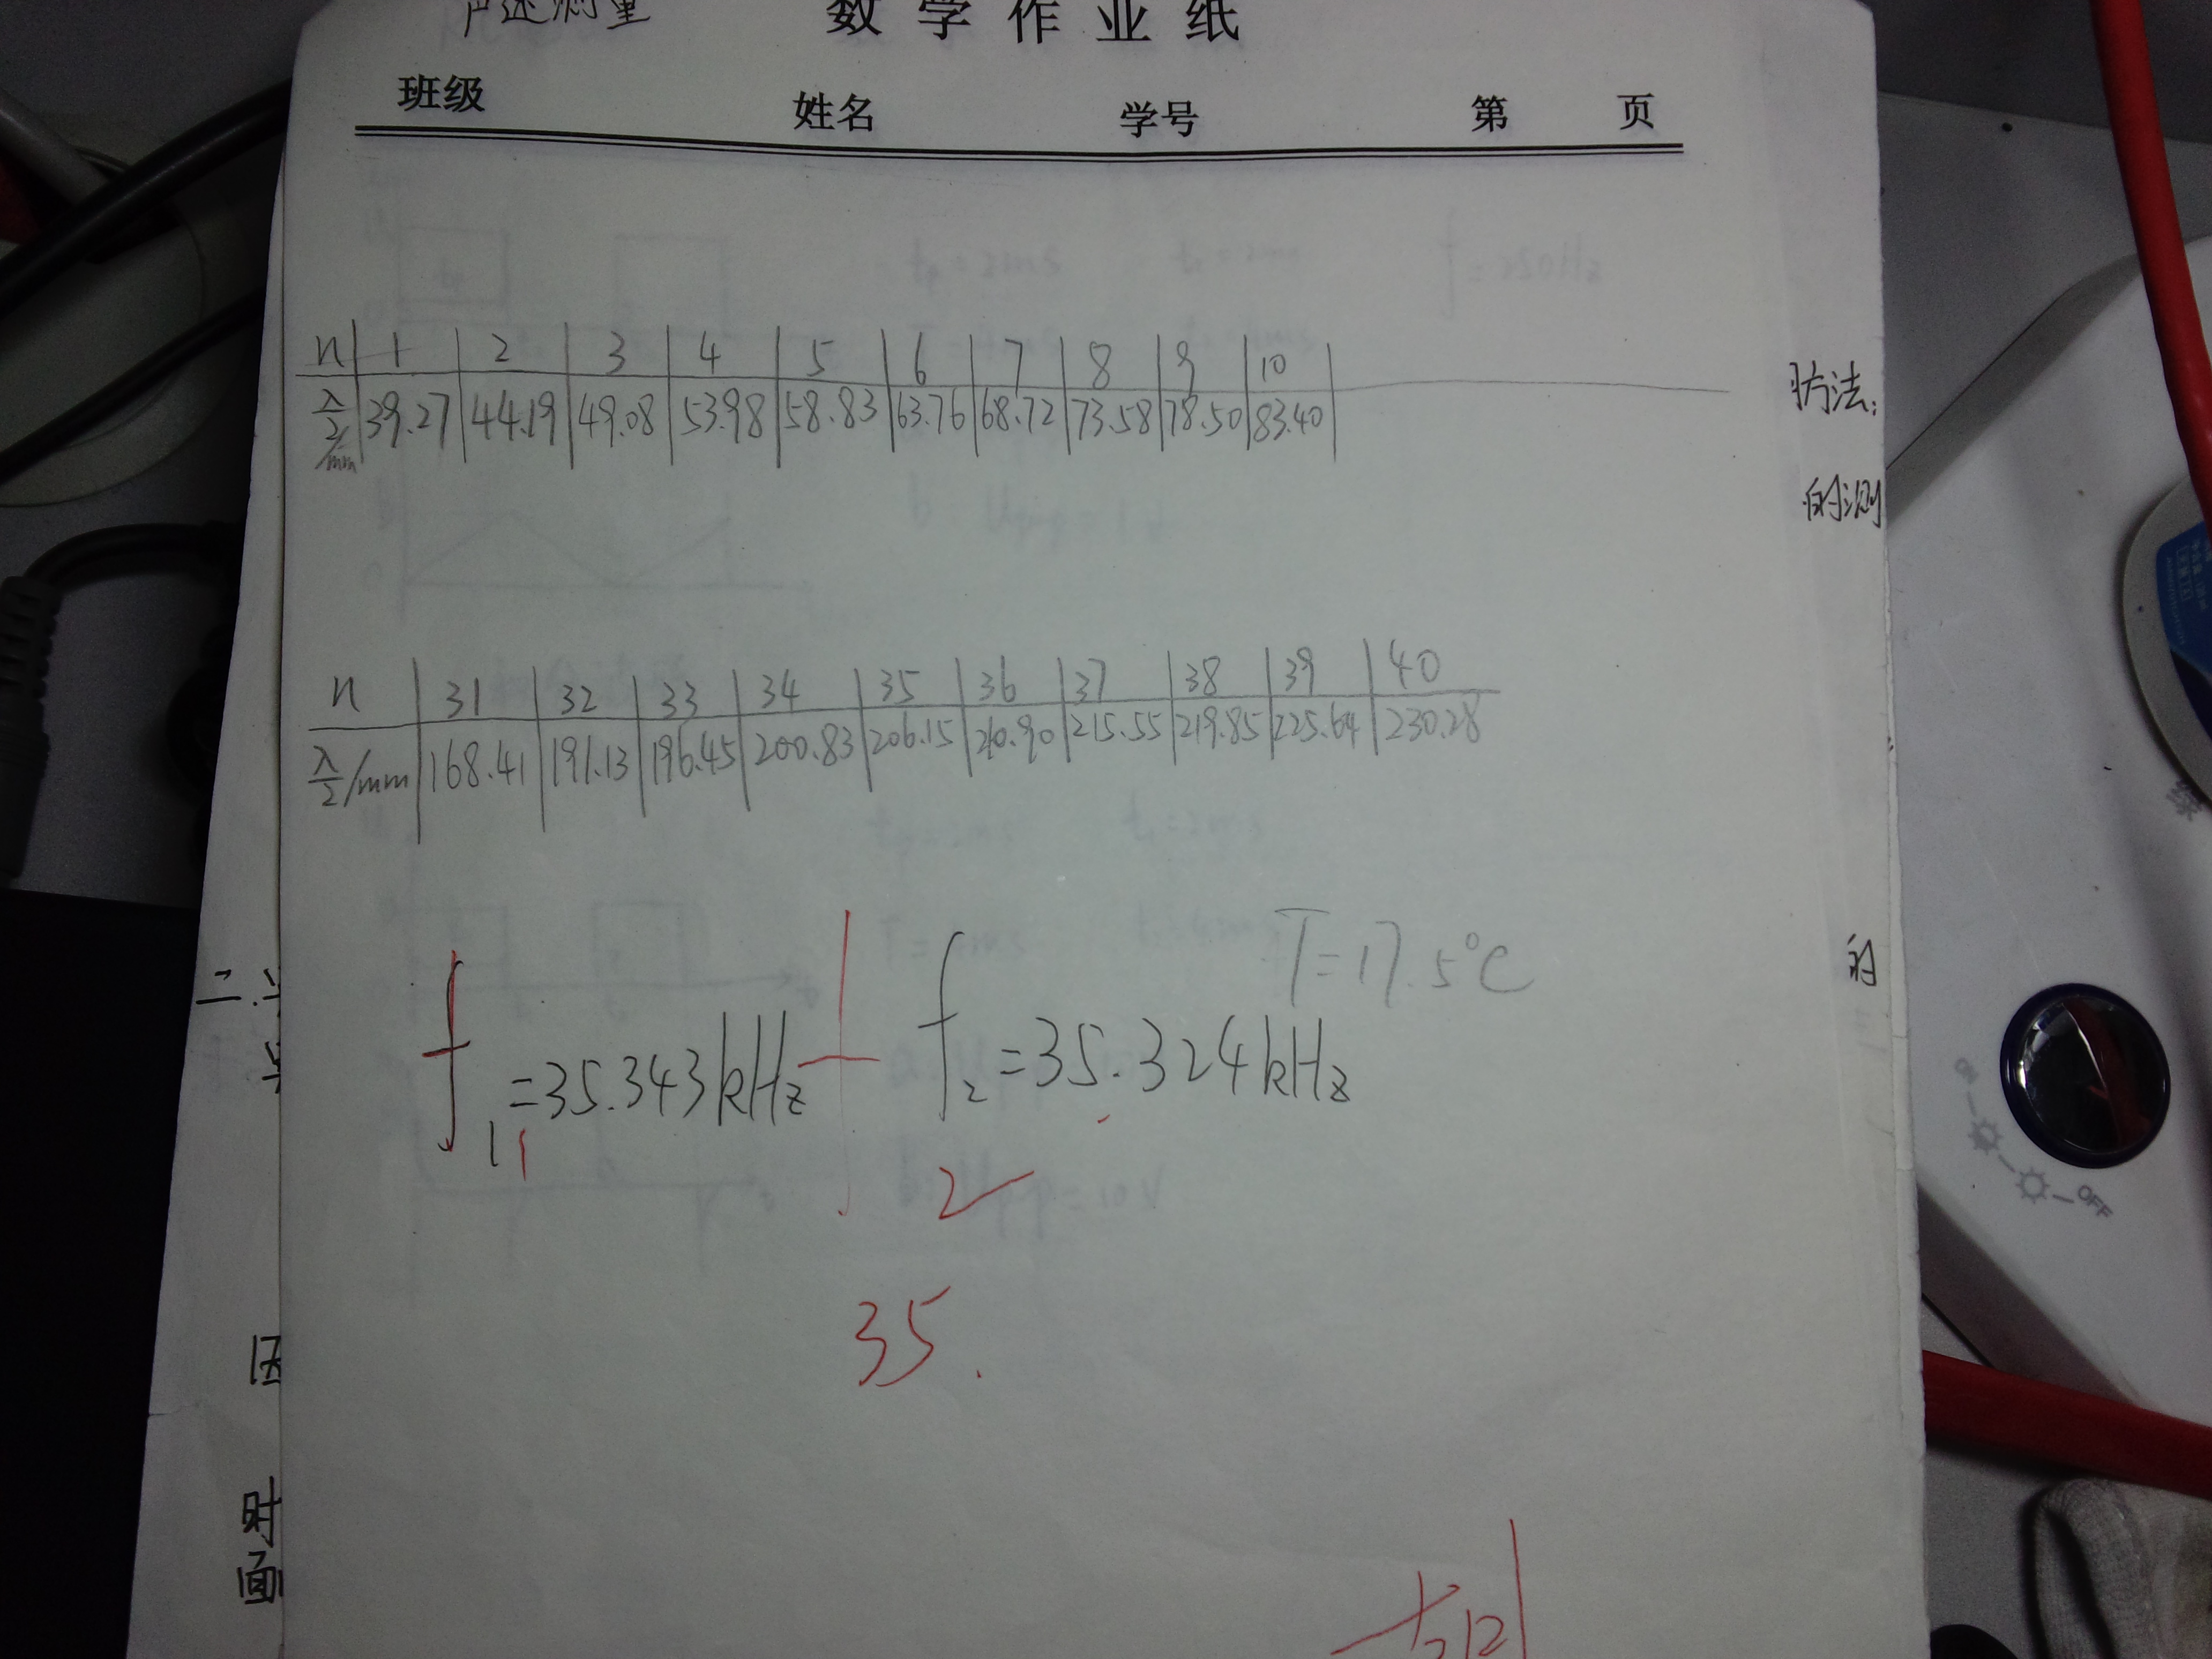 声速测量
数学作业纸
班级 姓名 学号 第 页
n 1 2 3 4 5 6 7 8 9 10
λ/2/mm 39.27 44.19 49.08 53.98 58.83 63.76 68.72 73.58 78.50 83.40
防法:
的测
n 31 32 33 34 35 36 37 38 39 40
λ/2/mm 168.41 191.13 196.45 200.83 206.15 210.90 215.55 219.85 225.64 230.28
T=17.5℃
的
二.
f₁=35.343kHz f₂=35.324kHz
2
35.
因
时
面
OFF